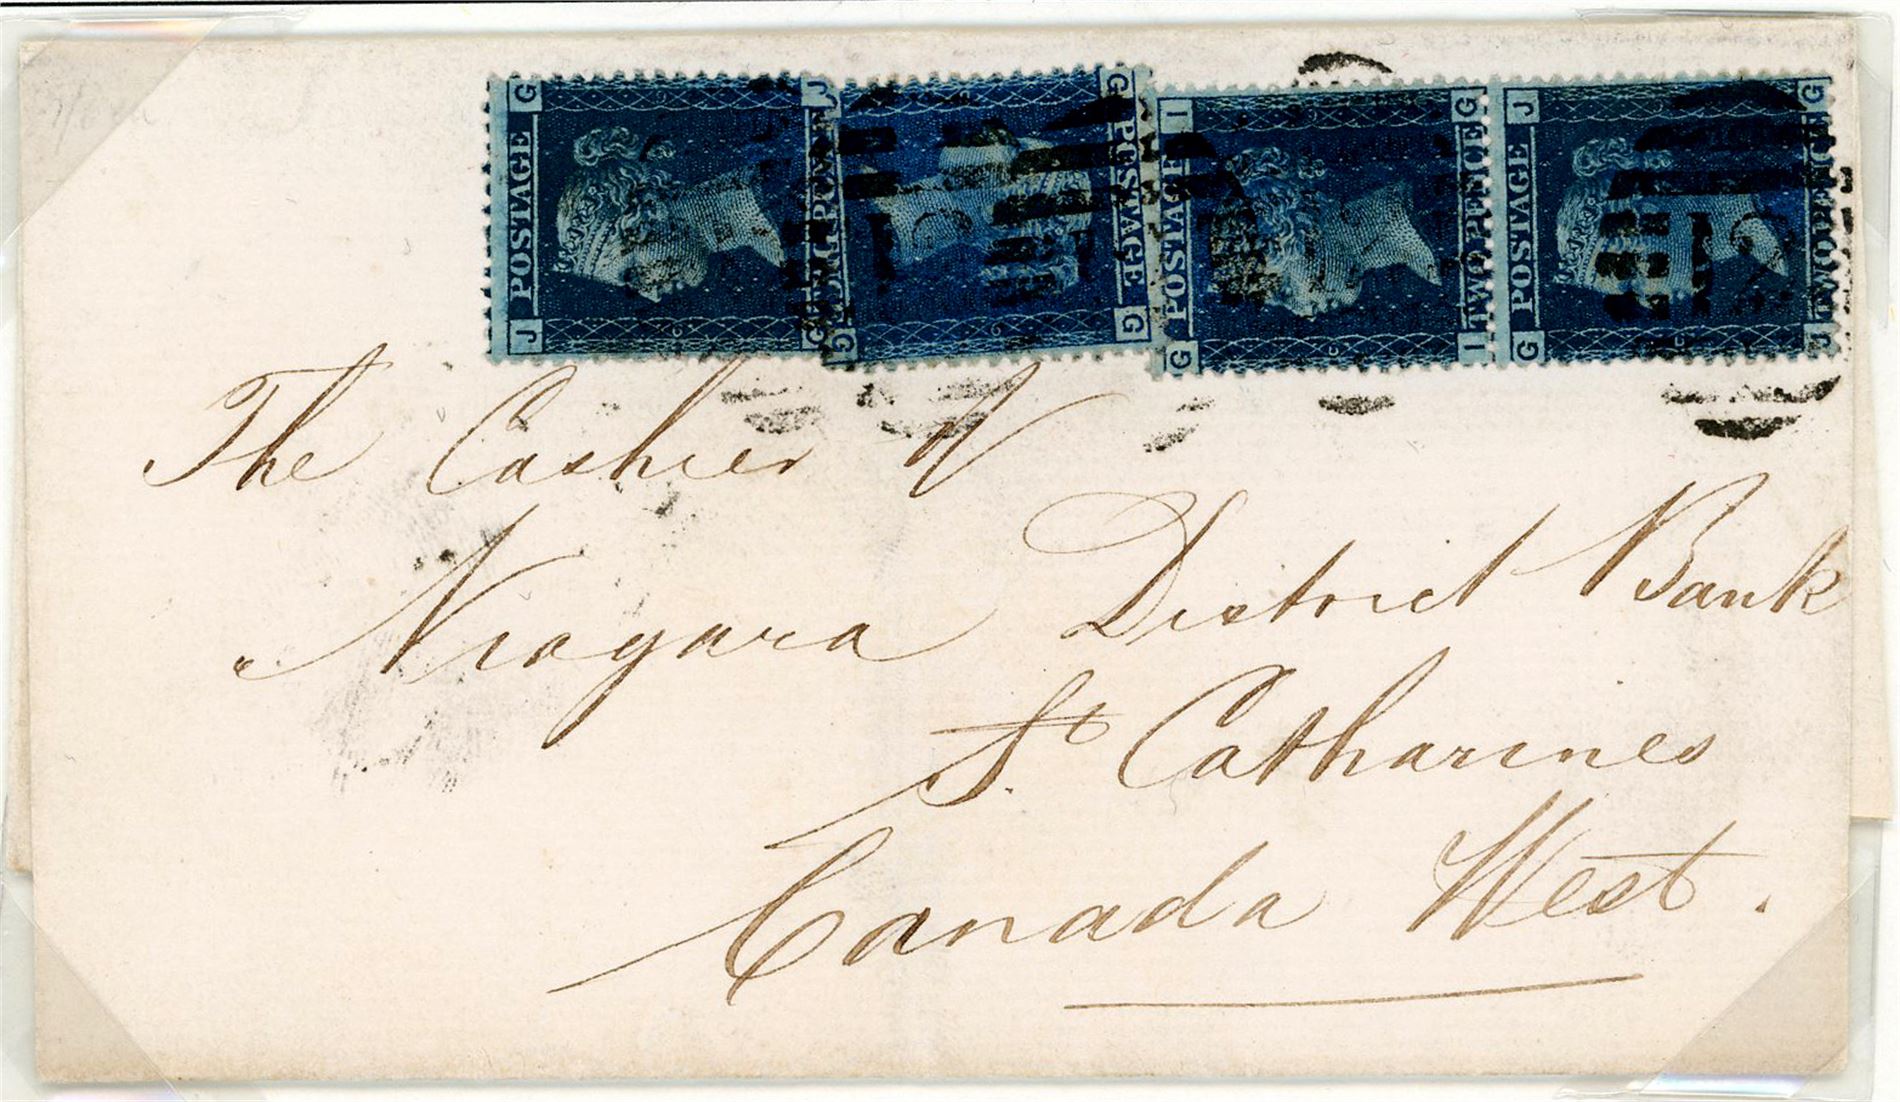 G J G G I G J G
POSTAGE POSTAGE POSTAGE TWO PENCE POSTAGE TWO PENCE
J G G G G I G J
The Cashier of
Niagara District Bank
St Catharines
Canada West.